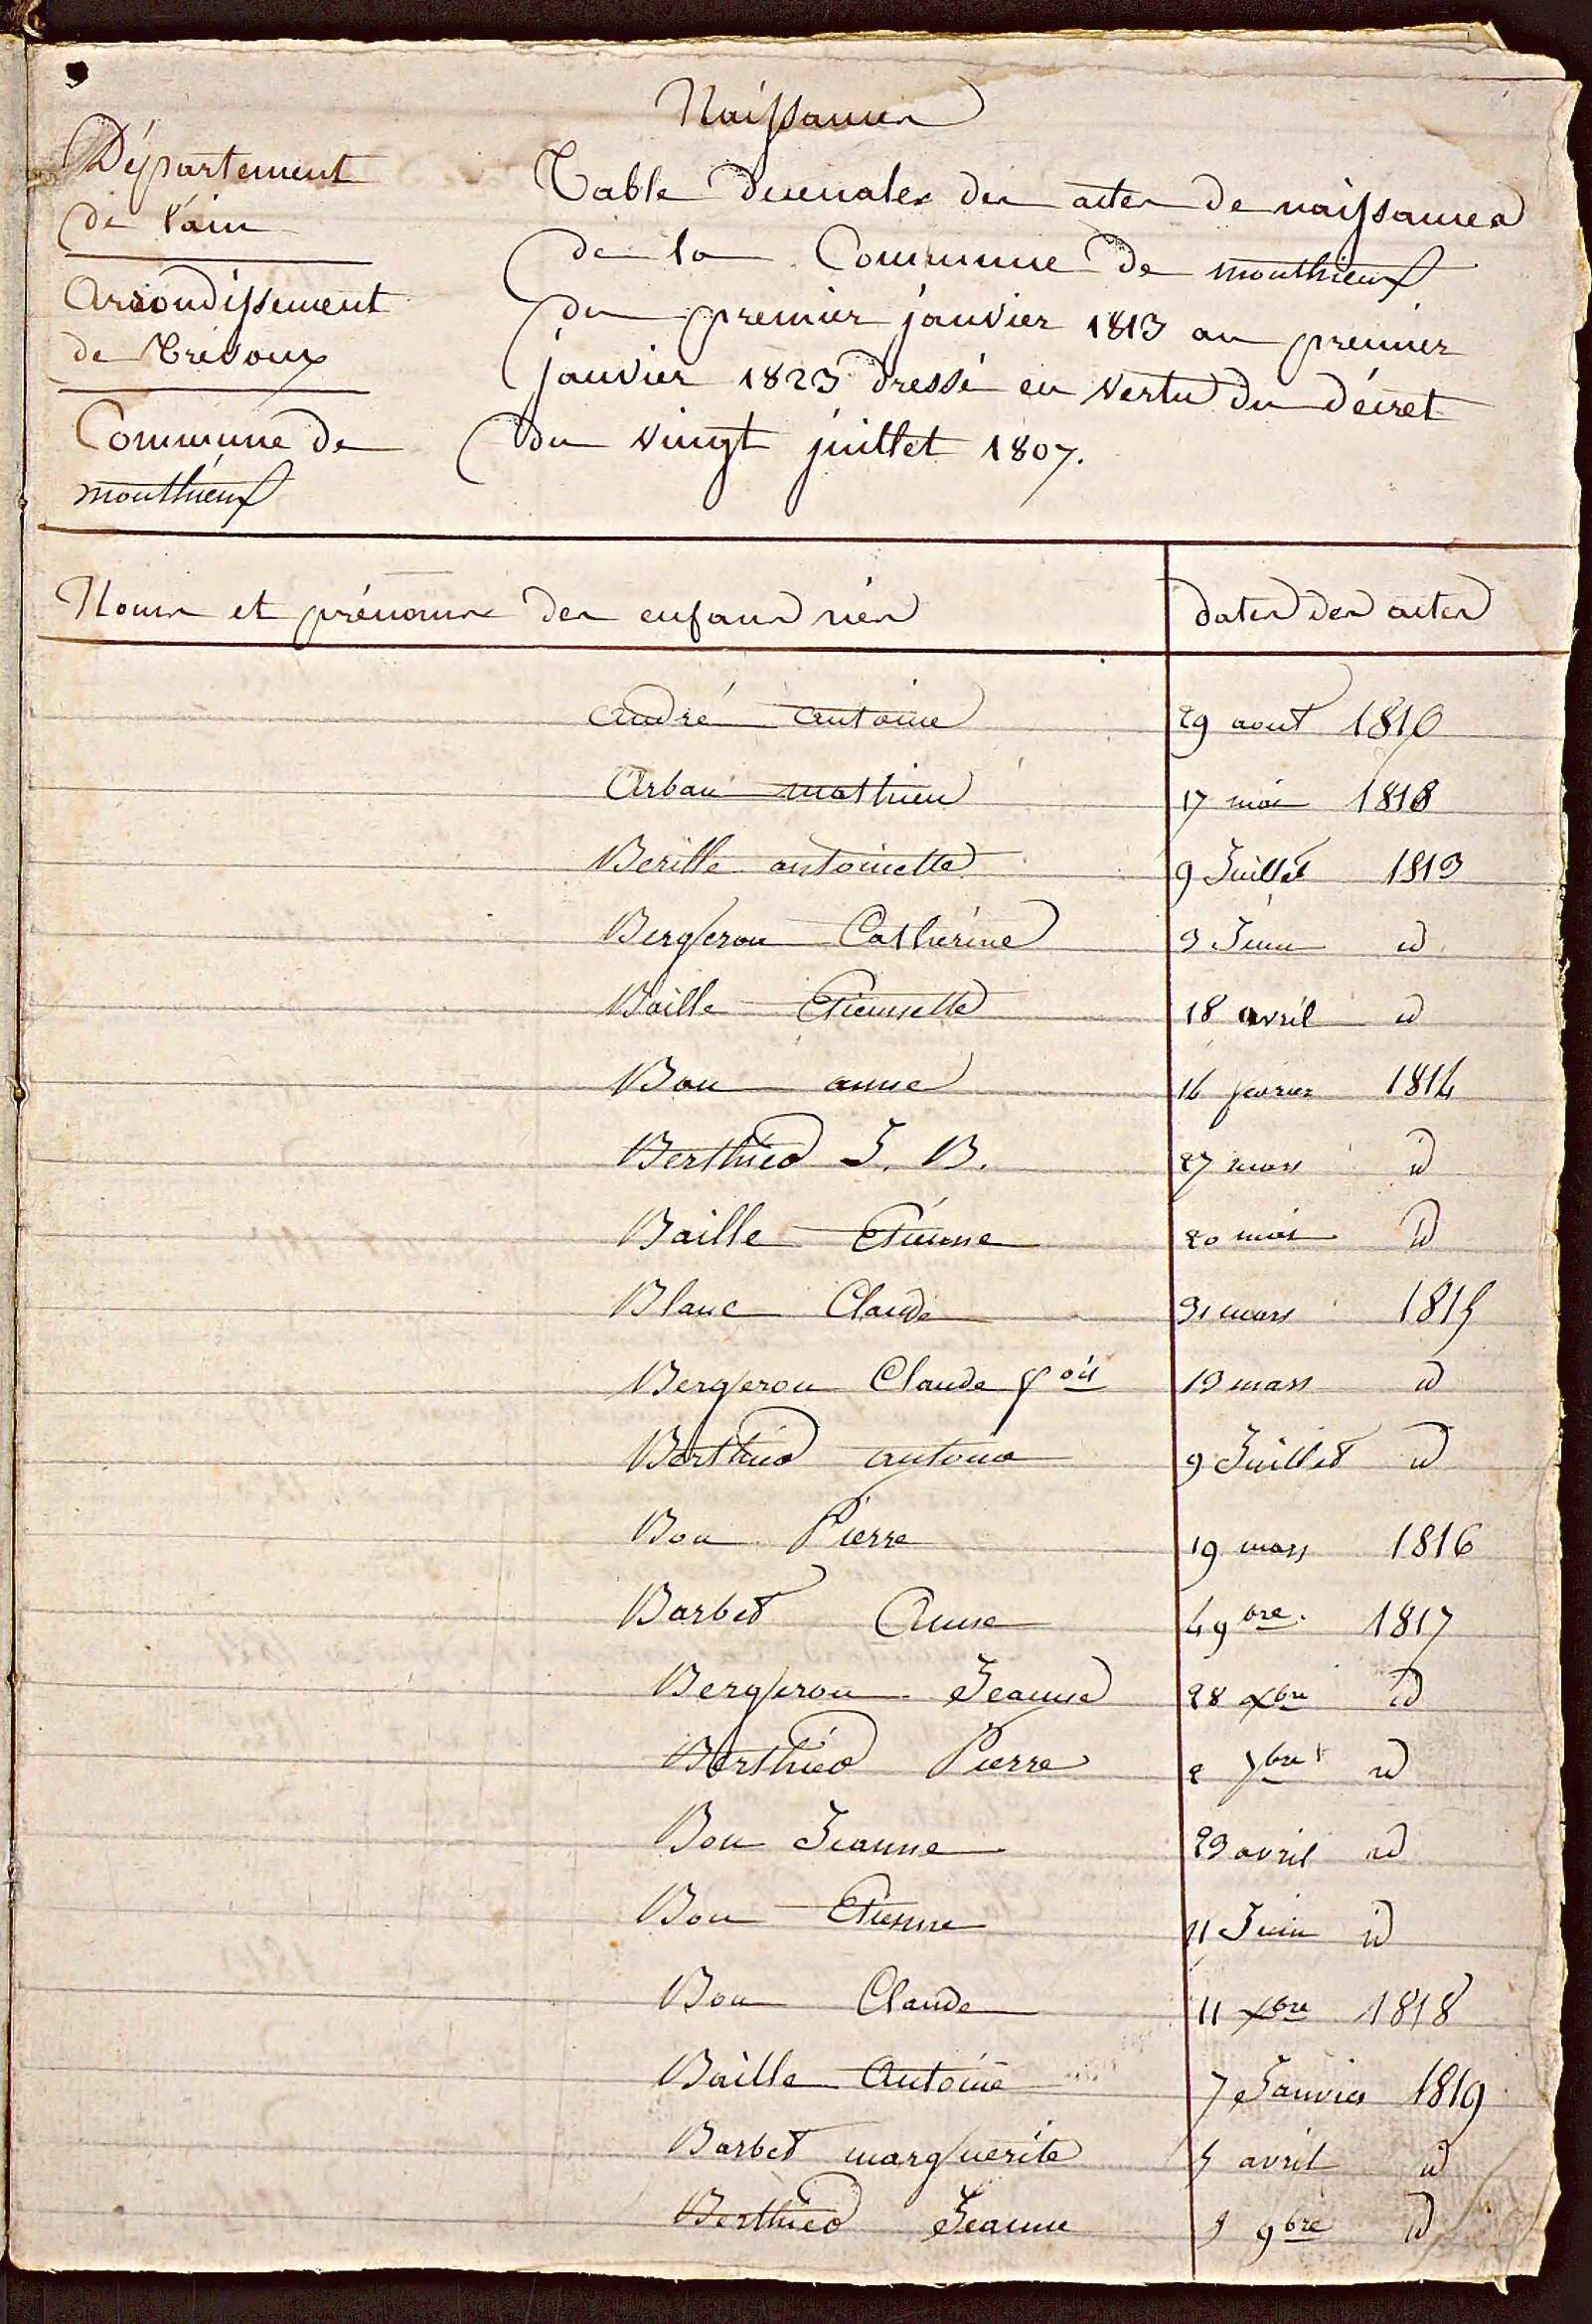 Naissances
Département
de l'ain
Arrondissement
de Trévoux
Commune de
monthieux
Table decenales des actes de naissances
de la Commune de monthieux
du premier janvier 1813 au premier
janvier 1823 dressé en vertu du décret
du vingt juillet 1807.
Noms et prénoms des enfans nés dates des actes
andré antoine 29 aout 1816
Arban mathieu 17 mai 1818
Berille antoinette 9 Juillet 1813
Bergeron Catherine 3 Juin id
Baille Etiennette 18 avril id
Bon anne 16 fevrier 1814
Berthied J. B. 27 mars id
Baille Etienne 20 mai id
Blanc Claude 31 mars 1815
Bergeron Claude fois 13 mars id
Berthied antoine 9 Juillet id
Bon Pierre 19 mars 1816
Barbet Anne 4 9bre. 1817
Bergeron Jeanne 28 xbre id
Berthied Pierre 2 7bre id
Bon Jeanne 23 avril id
Bon Etienne 11 Juin id
Bon Claude 11 xbre 1818
Baille Antoine 7 Janvier 1819
Barbet marguerite 5 avril id
Berthied Jeanne 9bre id